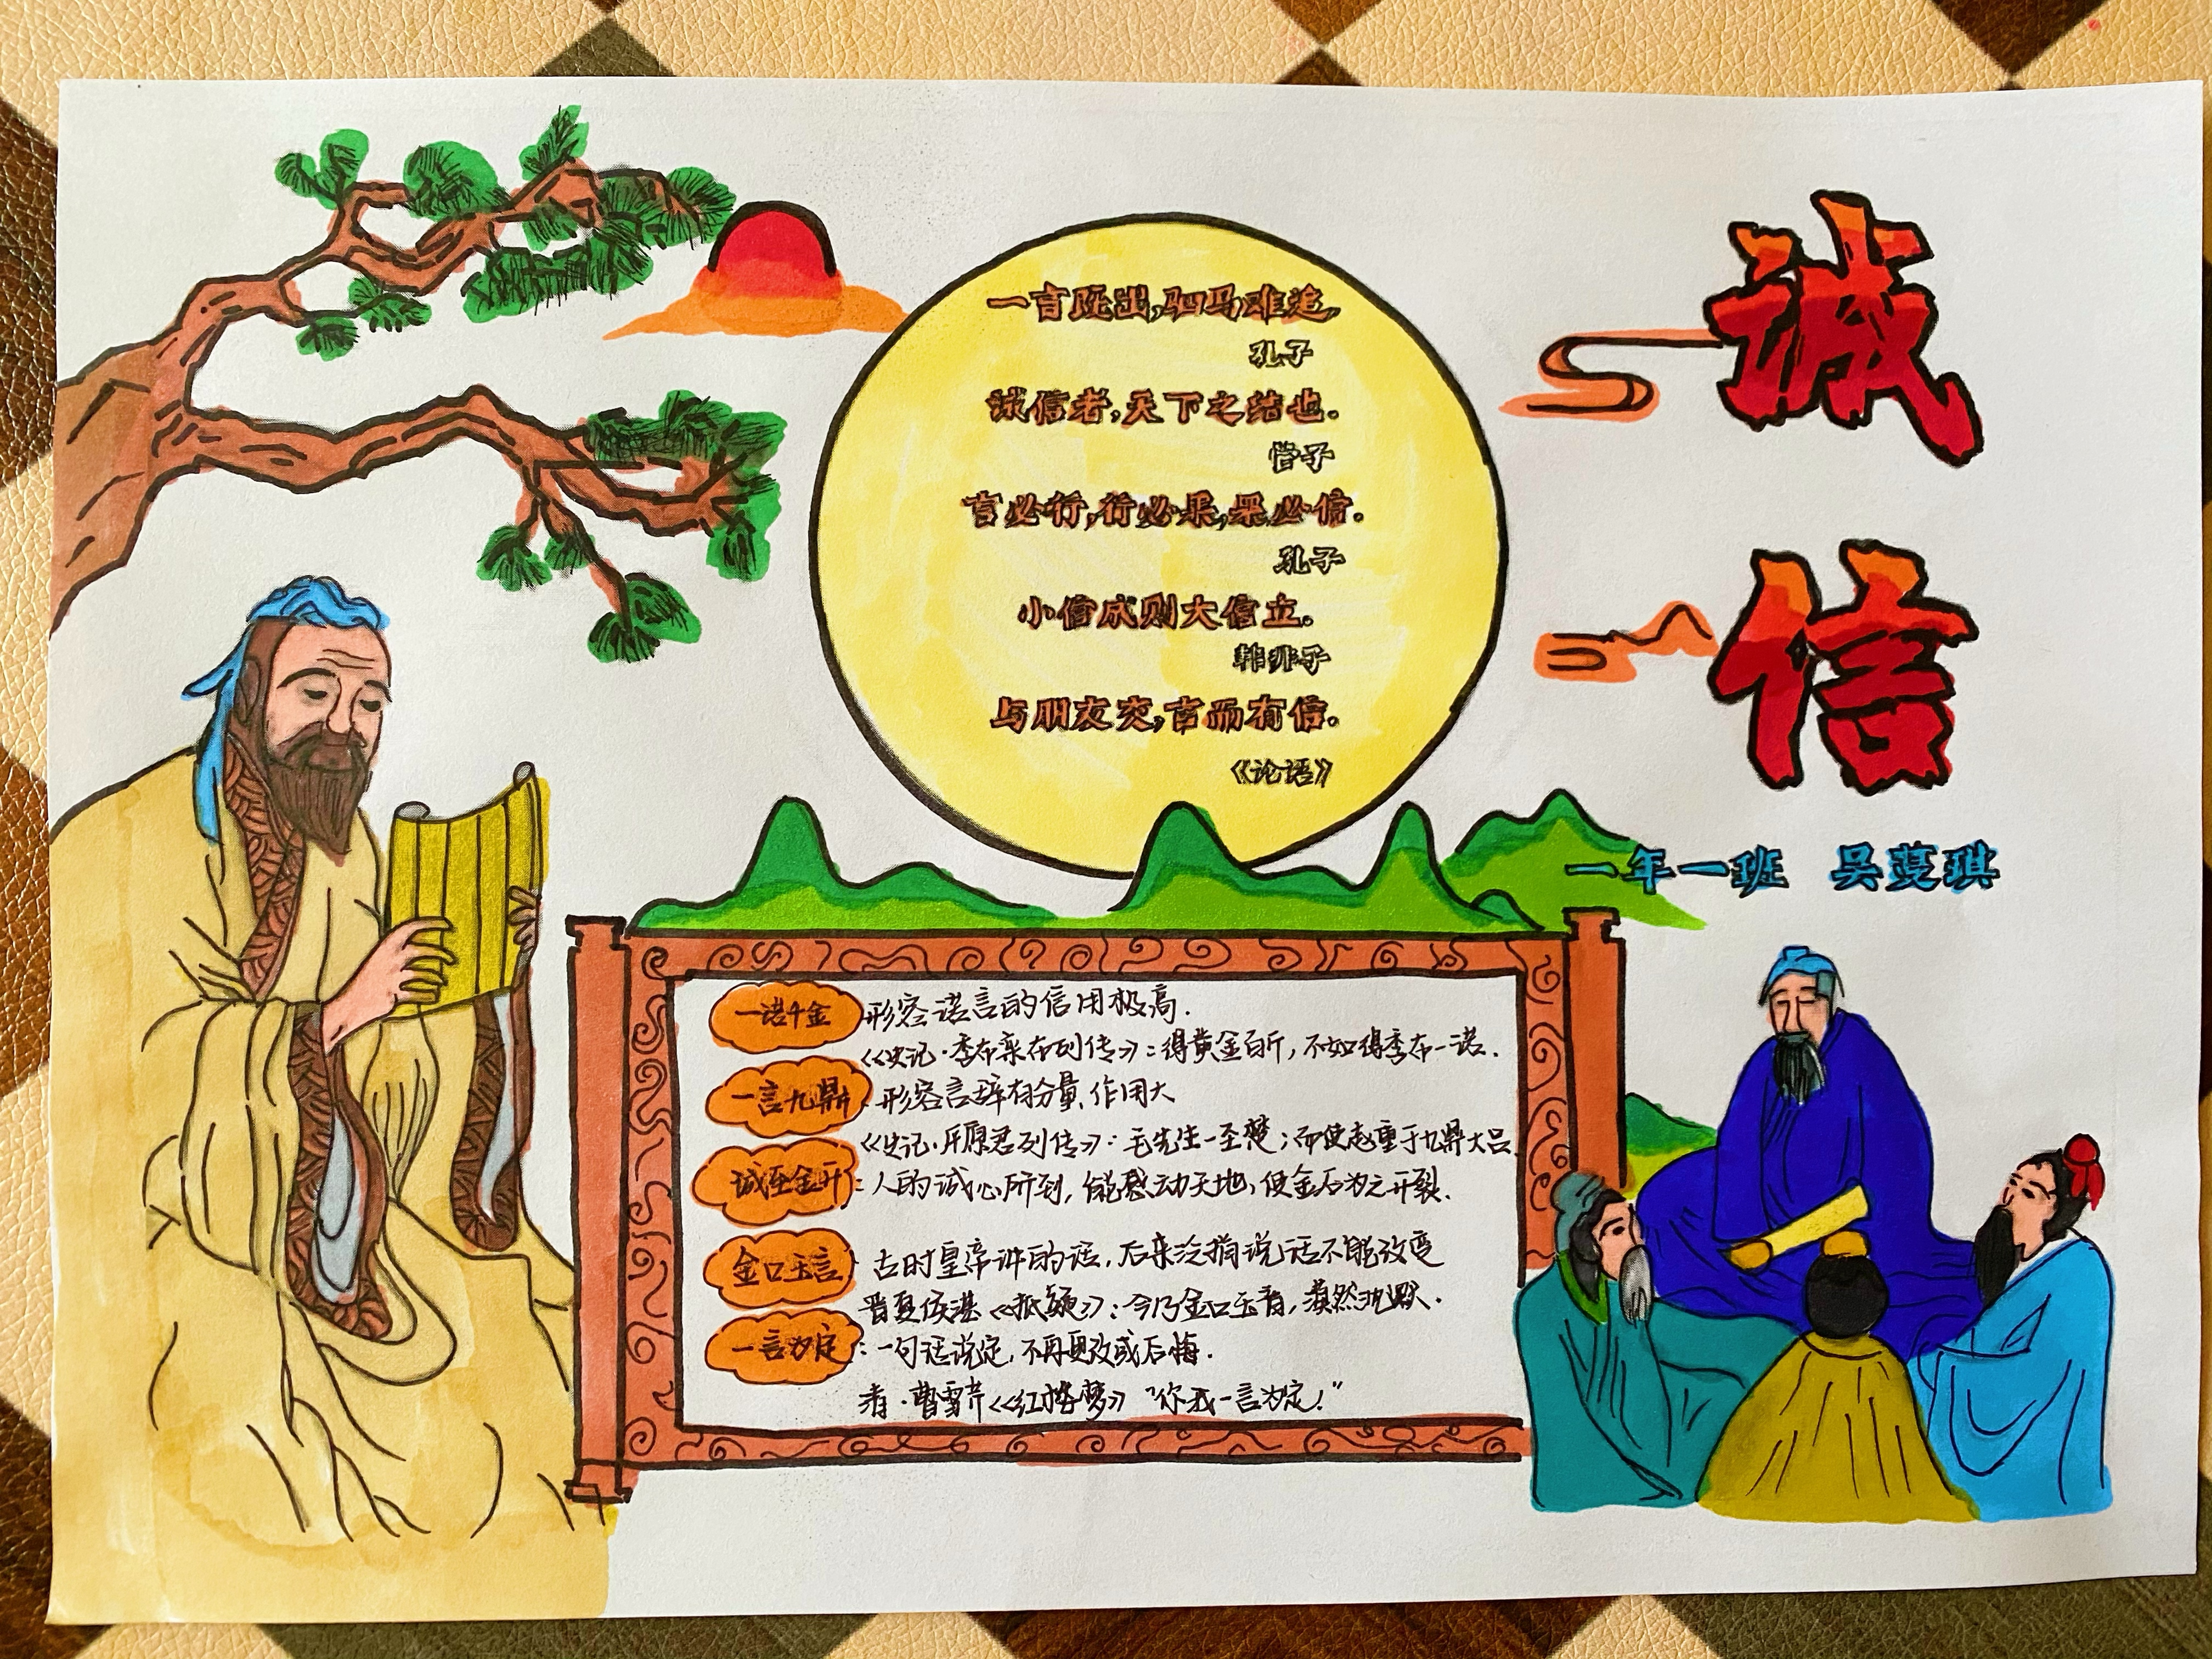 诚信
一年一班 吴蔓琪
一言既出,驷马难追,
孔子
诚信者,天下之结也.
管子
言必行,行必果,果必信.
孔子
小信成则大信立.
韩非子
与朋友交,言而有信.
《论语》
一诺千金 形容诺言的信用极高.
《史记·季布栾布列传》:得黄金百斤,不如得季布一诺.
一言九鼎:形容言辞有分量,作用大
《史记·平原君列传》:毛先生一至楚;而使赵重于九鼎大吕.
诚至金开:人的诚心所到,能感动天地,使金石为之开裂.
金口玉言:古时皇帝讲的话,后来泛指说话不能改变
晋夏侯湛《抵疑》:今乃金口玉言,漠然沉默.
一言为定:一句话说定,不再更改或后悔.
清·曹雪芹《红楼梦》"你我一言为定!"